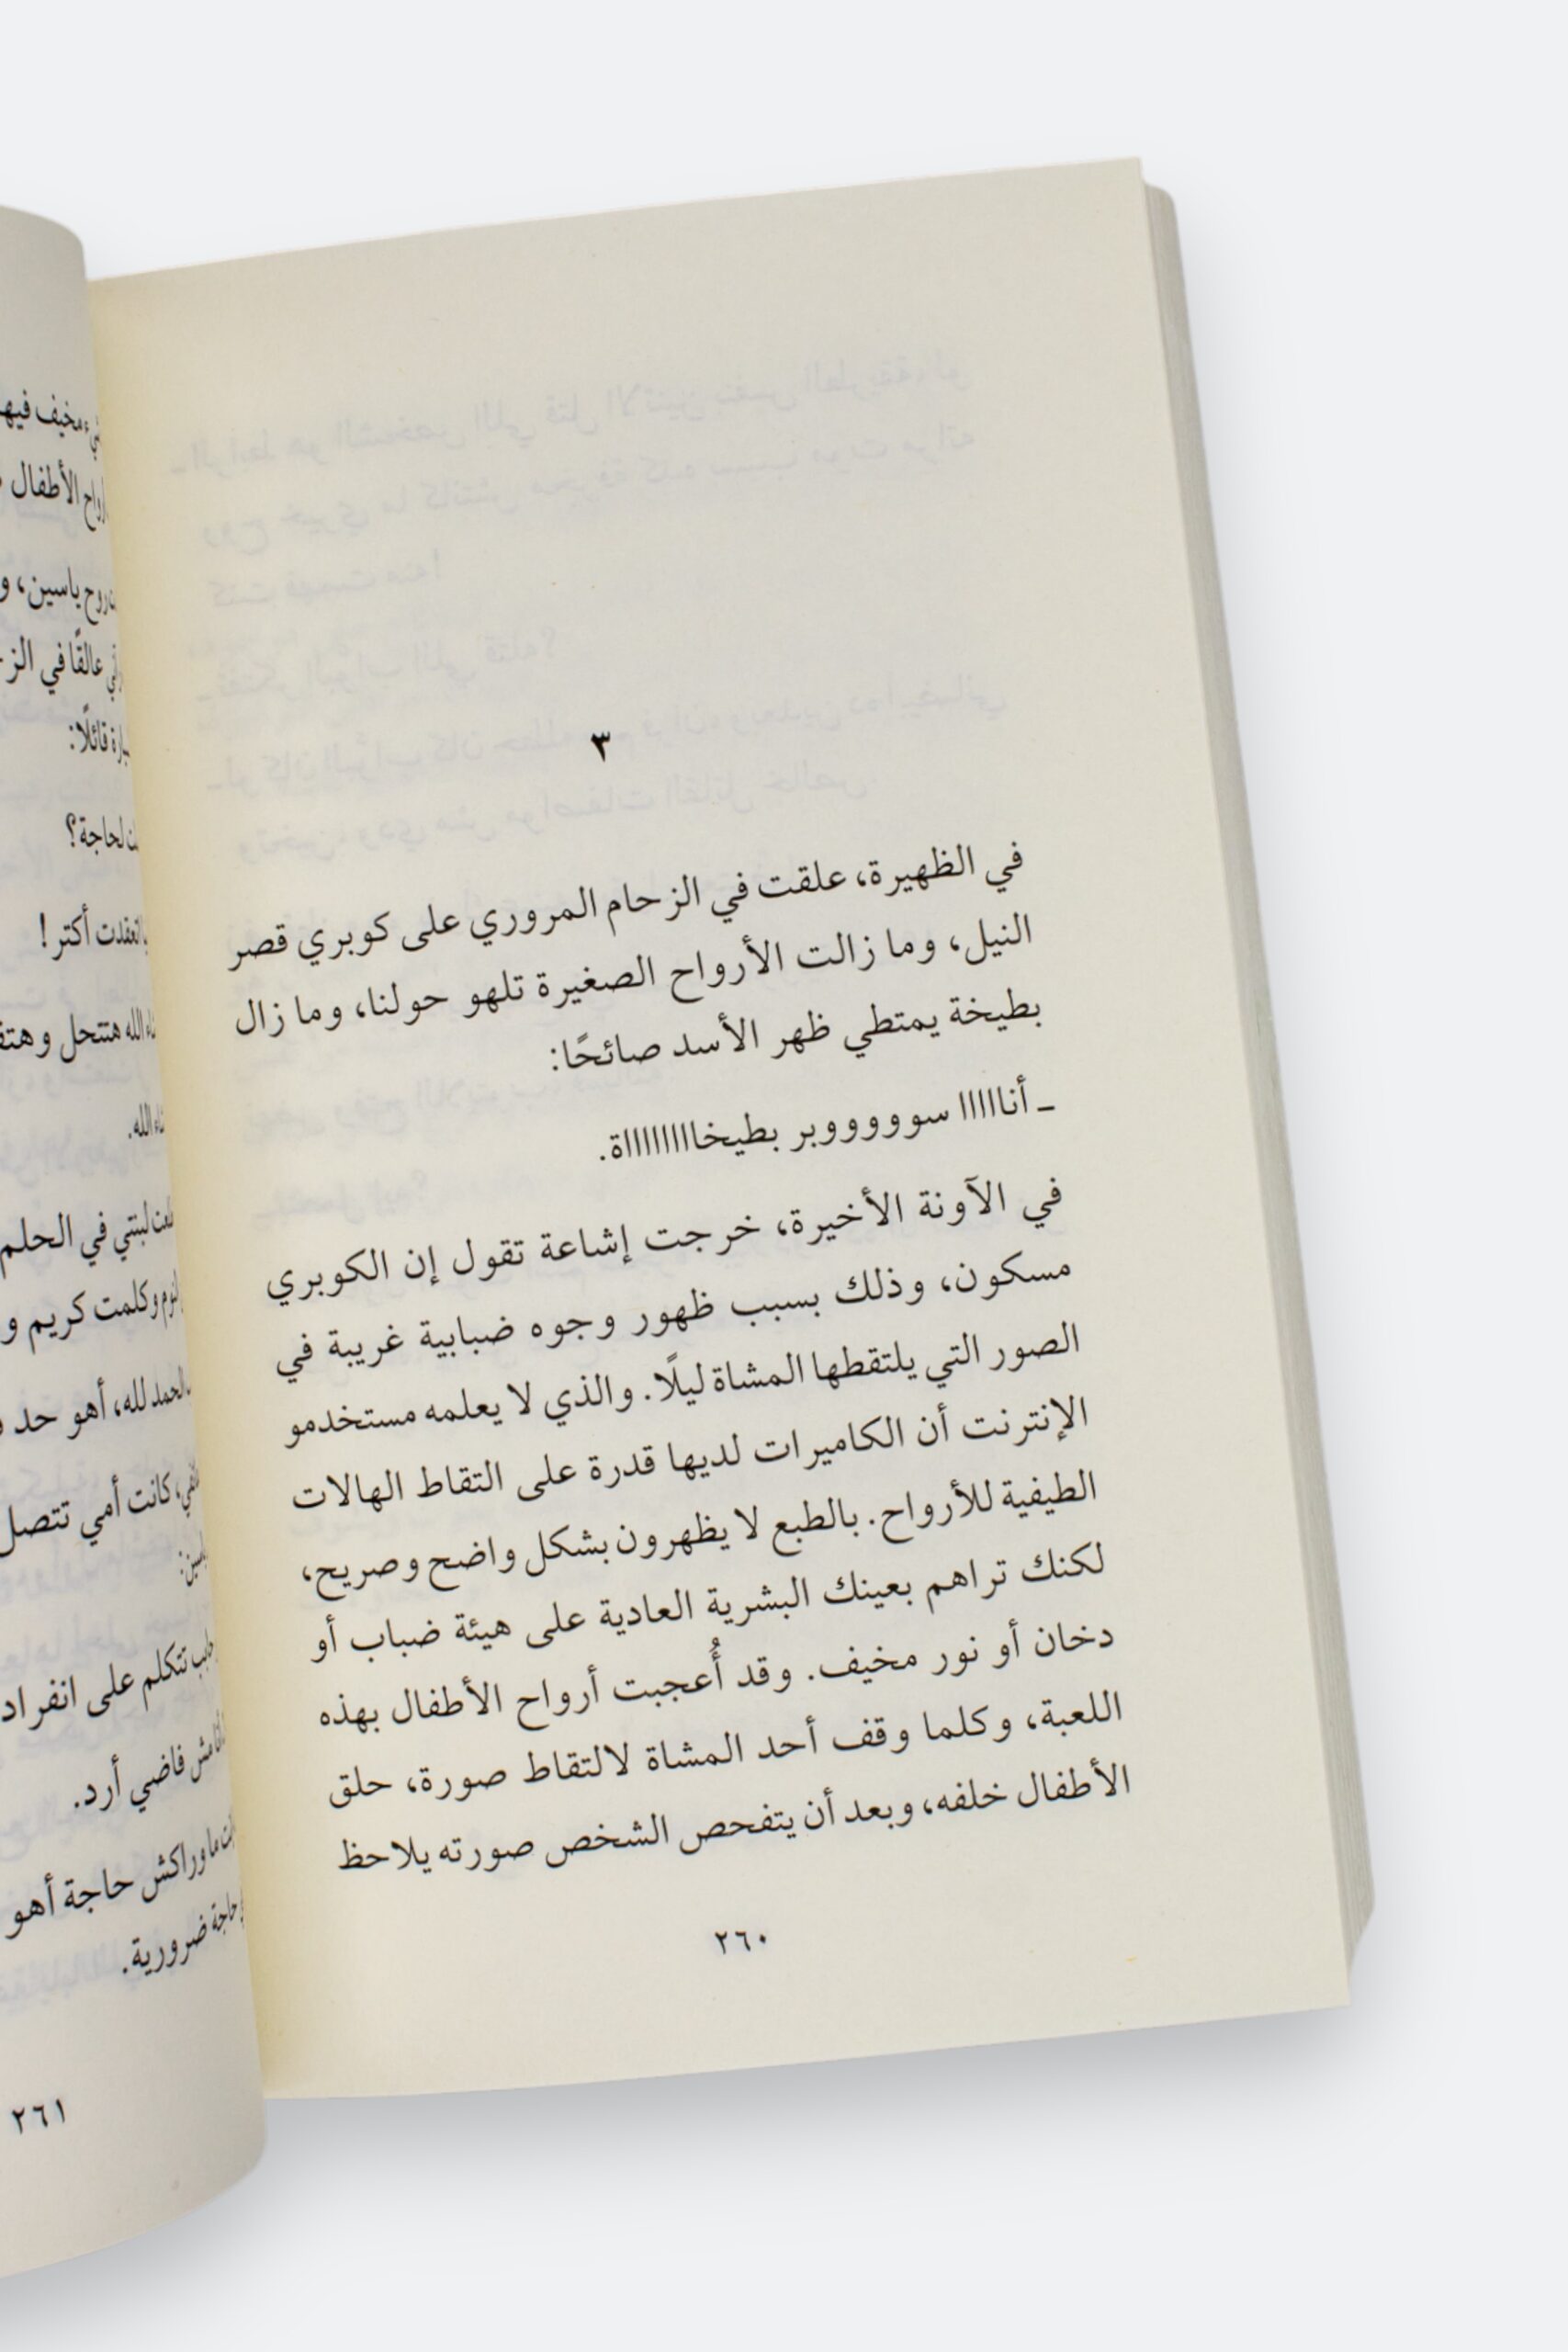 ٣
في الظهيرة، علقت في الزحام المروري على كوبري قصر
النيل، وما زالت الأرواح الصغيرة تلهو حولنا، وما زال
بطيخة يمتطي ظهر الأسد صائحًا:
ـ أنااااا سووووووبر بطيخااااااااة.
في الآونة الأخيرة، خرجت إشاعة تقول إن الكوبري
مسكون، وذلك بسبب ظهور وجوه ضبابية غريبة في
الصور التي يلتقطها المشاة ليلًا. والذي لا يعلمه مستخدمو
الإنترنت أن الكاميرات لديها قدرة على التقاط الهالات
الطيفية للأرواح. بالطبع لا يظهرون بشكل واضح وصريح،
لكنك تراهم بعينك البشرية العادية على هيئة ضباب أو
دخان أو نور مخيف. وقد أُعجبت أرواح الأطفال بهذه
اللعبة، وكلما وقف أحد المشاة لالتقاط صورة، حلق
الأطفال خلفه، وبعد أن يتفحص الشخص صورته يلاحظ
٢٦٠
مخيف فيه
الأطفال
روح ياسين، و
عالقًا في
قائلًا:
لحاجة؟
اتعقدت أكتر!
الله هتتحل
الله.
لبنتي في الحلم
وكلمت كريم و
الحمد لله، أهو حد
كانت أمي تتصل
تتكلم على انفراد
مش فاضي أرد.
ما وراكش حاجة أهو
حاجة ضرورية.
٢٦١